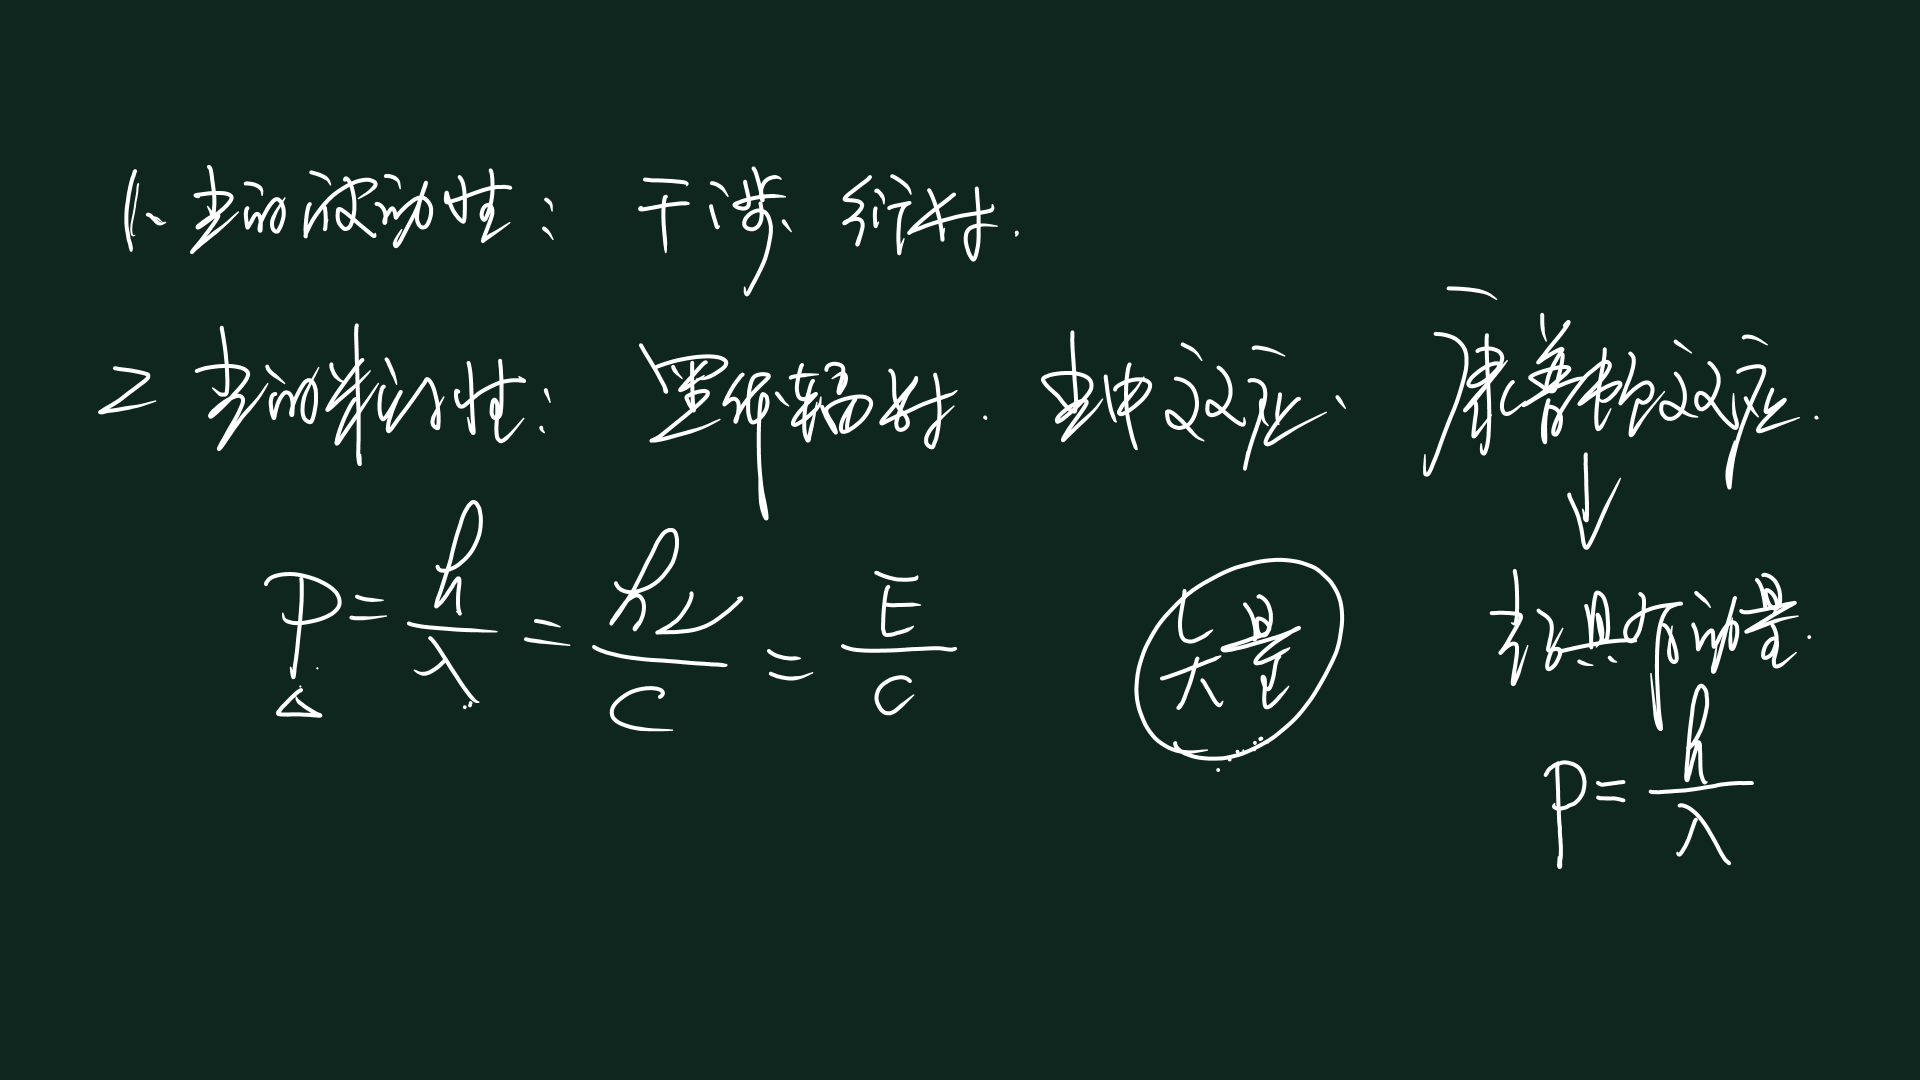 1、光的波动性：干涉、衍射.
2 光的粒子性：黑体辐射.光电效应、康普顿效应.
↓
P=h/λ=hν/c=E/c
大量
光具有动量.
P=h/λ